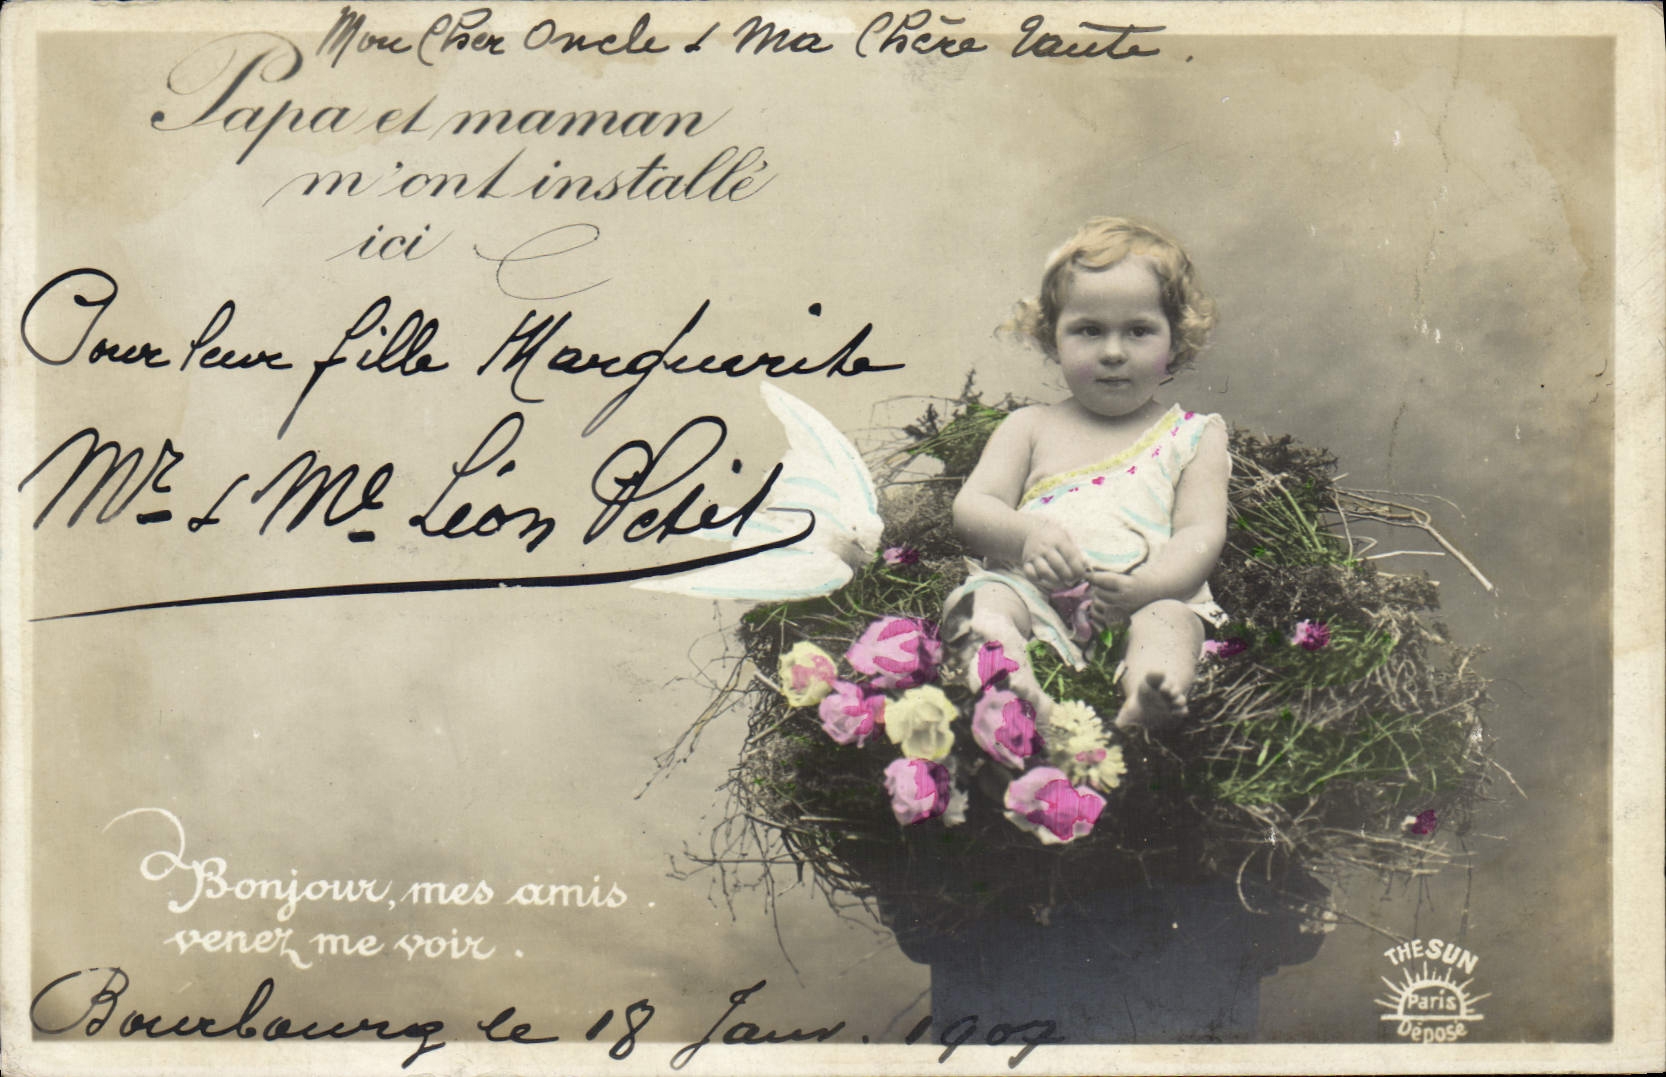 Mon Cher Oncle & Ma Chère Tante.
Papa et maman
m'ont installé
ici
Pour leur fille Marguerite
Mr & Me Léon Petit
Bonjour, mes amis.
venez me voir.
Bourbourg le 18 Janv. 1909
THE SUN
Paris
Déposé